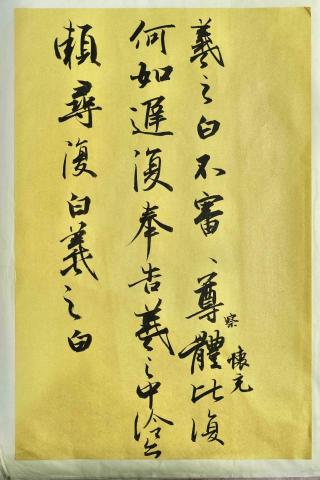 羲之白不審、尊體比復
察
懷充
何如遲復奉告羲之中冷無
賴尋復白羲之白